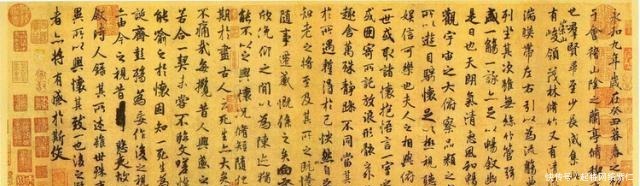 永和九年歲在癸丑暮春之
于會稽山陰之蘭亭脩
也群賢畢至少長咸集
崇山
有峻領茂林脩竹又有清
湍暎帶左右引以為流觴
列坐其次雖無絲竹管弦
盛一觴一詠亦足以暢敘幽
是日也天朗氣清惠風和暢
觀宇宙之大俯察品類之
所以遊目騁懷足以極視聽
娛信可樂也夫人之相與俯
一世或取諸懷抱悟言一室
或因寄所託放浪形骸之外
趣舍萬殊靜躁不同當其
於所遇暫得於己怏然自
知老之將至及其所之既
隨事遷感慨係之矣向
欣俛仰之閒以為陳迹猶
能不以之興懷況脩短隨化
期於盡古人云死生亦大
不痛哉每攬昔人興感之
若合一契未嘗不臨文嗟
能喻之於懷固知一死生
誕齊彭殤為妄作後之視
由今之視昔悲夫故
敘時人錄其所述雖世殊
異所以興懷其致一也後
者亦將有感於斯文